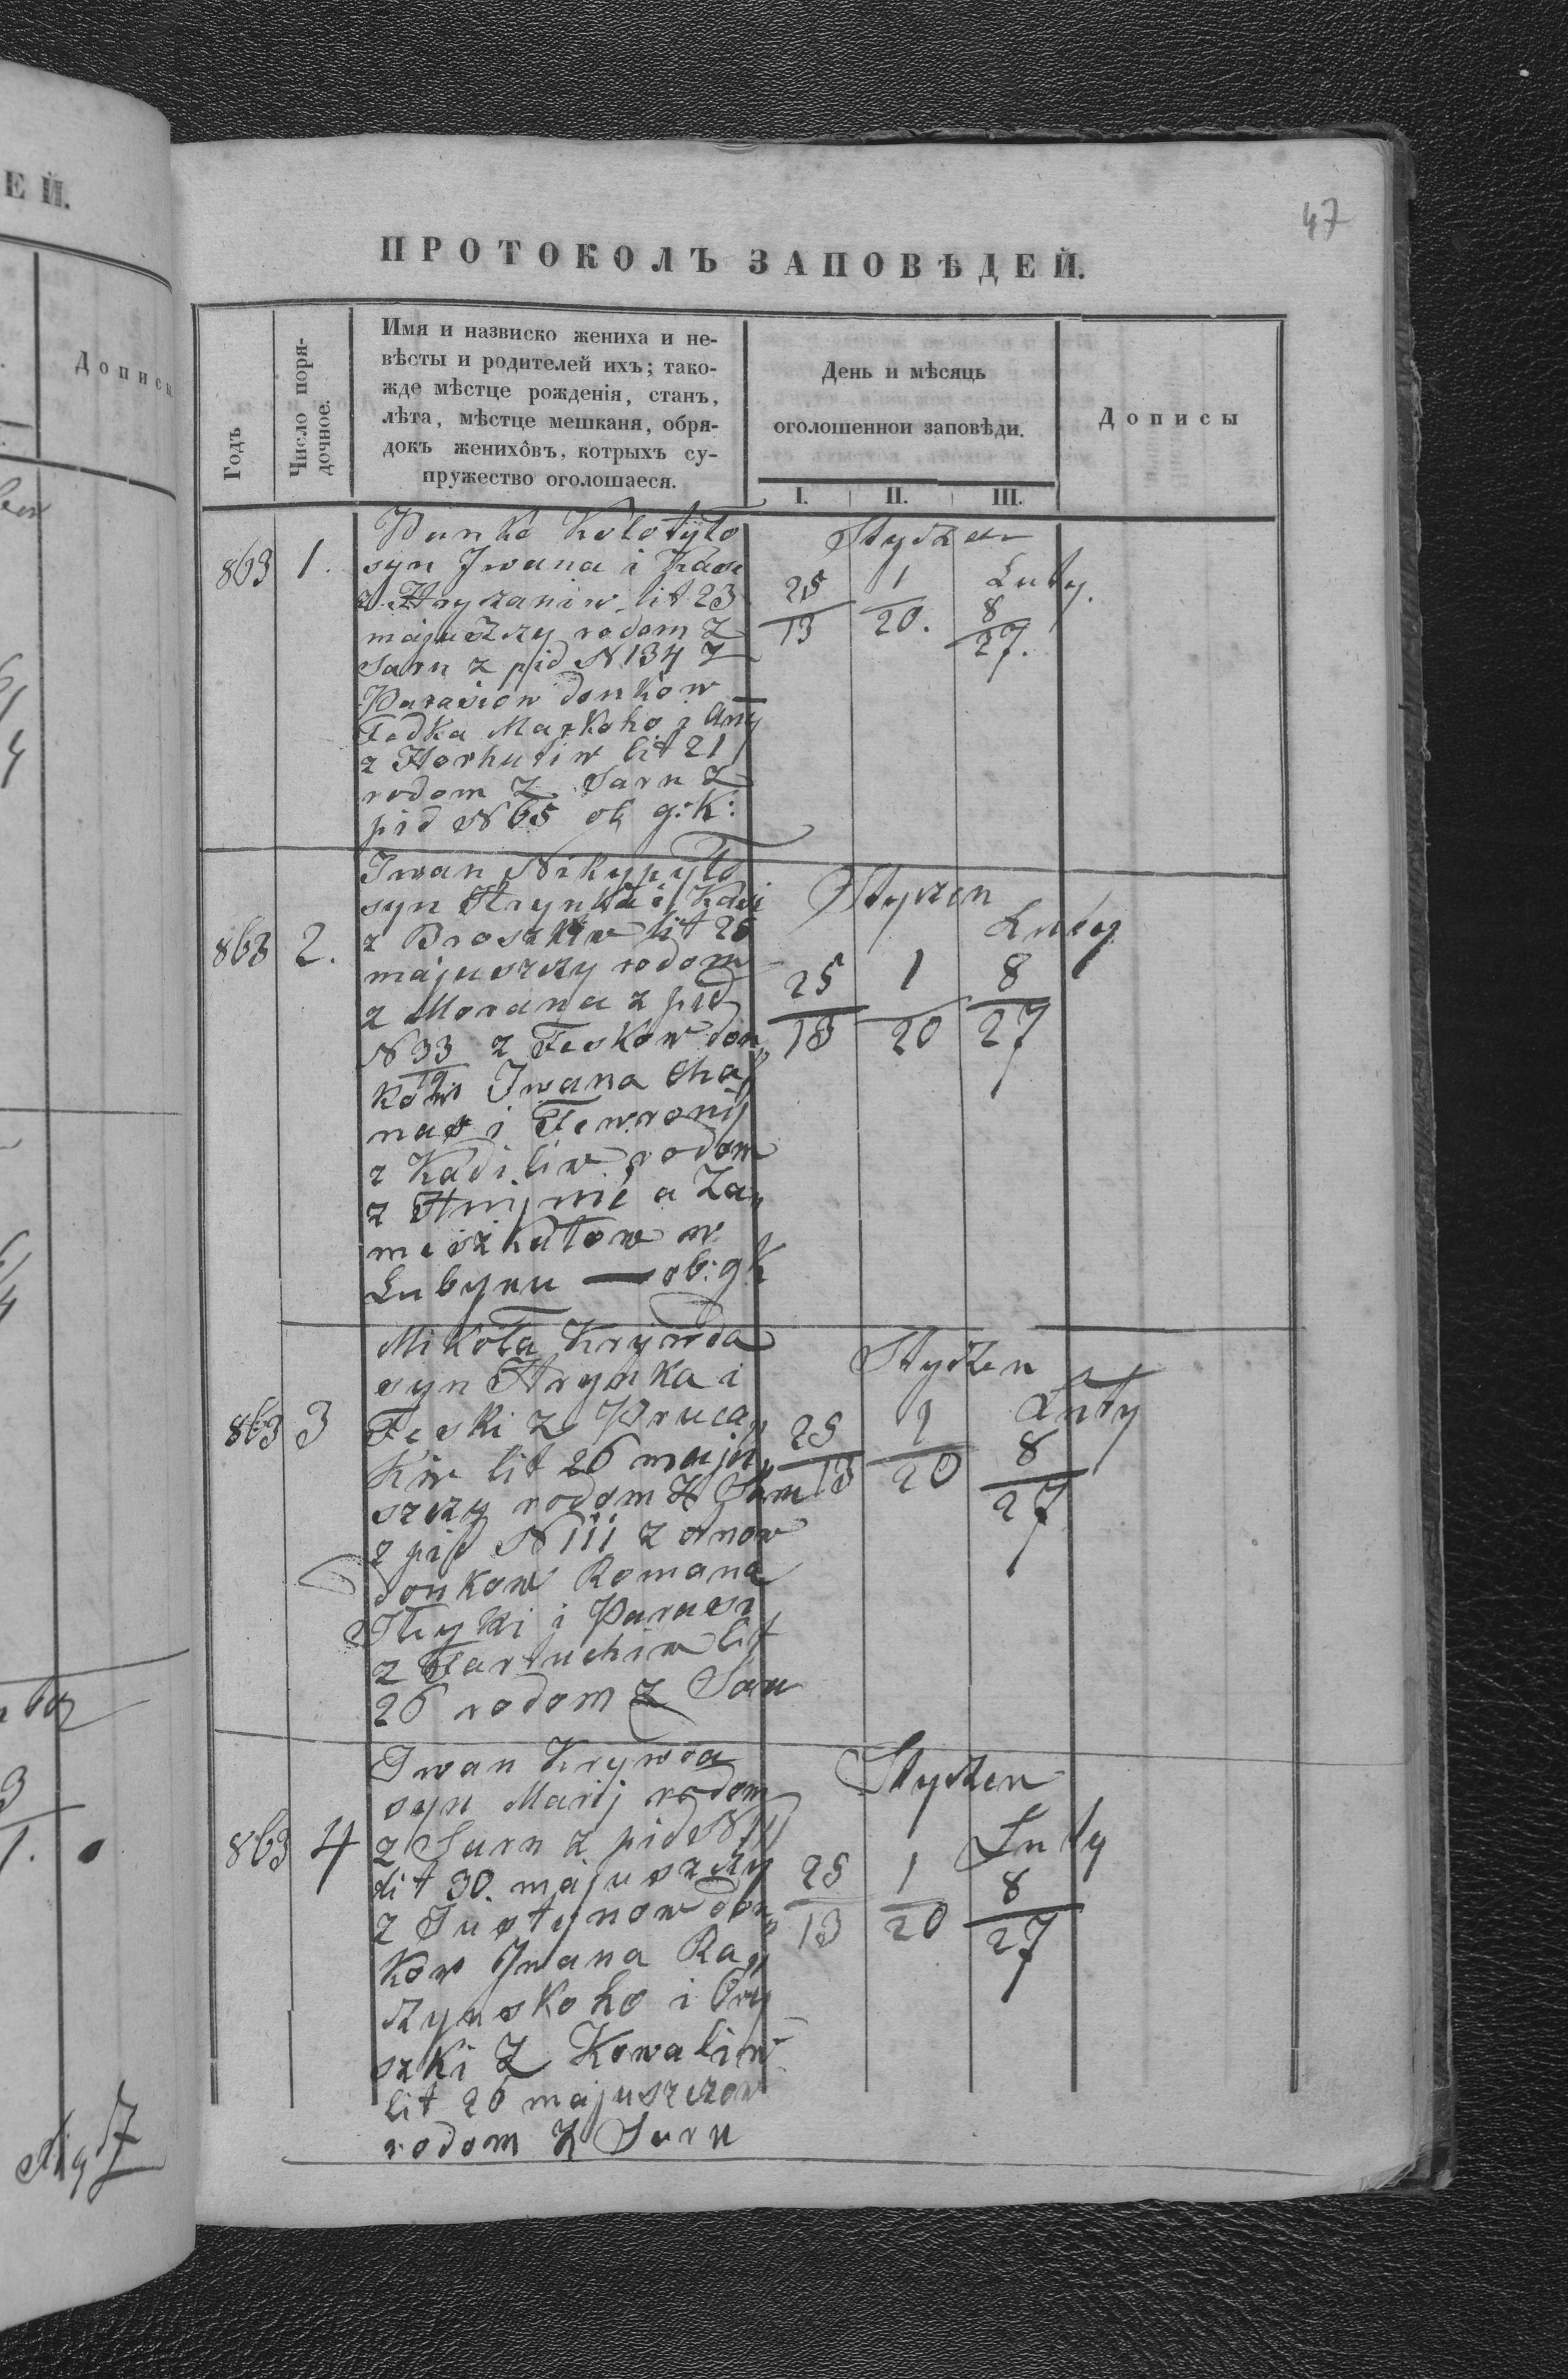 ЕЙ.
Дописы
47
ПРОТОКОЛЪ ЗАПОВѢДЕЙ.
Годъ
Число поря-
дочное.
Имя и назвиско жениха и не-
вѣсты и родителей ихъ; тако-
жде мѣстце рожденія, станъ,
лѣта, мѣстце мешканя, обря-
докъ женихôвъ, котрыхъ су-
пружество оголошаеся.
День и мѣсяць
оголошеннои заповѣди.
I. II. III.
Дописы
863 1.
Panko Kołotyło
syn Jwana i Kasi
z Hryzaniw lit 23
majuszzy rodom z
Sarn z pid N 134 z
Parasiow donkow
Fedka Mazkoho i Anny
z Horhutiw lit 21
rodom z Sarn z
pid N 65 ob g: k:
Styczen
Luty.
25/13 1/20. 8/27.
863 2.
Iwan Nikypyło
syn Hrynka i Kasi
z Broszkiw lit 25
majuszczy rodom
z Morana z pid
N 33/19 z Feskow don„
kow Iwana Cha„
nas i Fewronij
z Kadiliw rodom
z Hnijnic a Za„
mieszkułow w
Lubynu — ob: g k
Styczen
Luty
25/13 1/20 8/27
863 3
Mikoła Krywda
syn Hrynka i
Feski z Pruca„
kiw lit 26 maju„
szczy rodom z Sarn
z pid N 111 z Anow
donkow Romana
i Parasi
lit
26 rodom z Sarn
Styczen
Luty
25/13 1/20 8/27
863 4
Iwan Krywda
syn Marij rodom
z Sarn z pid N 111
lit 30. majuszczy
z Justynow don„
kow Jwana Ra„
czynskoho i Ory„
szki z Kowaliw
lit 26 majuszczow
rodom z Sarn
Styczen
Luty
25/13 1/20 8/27